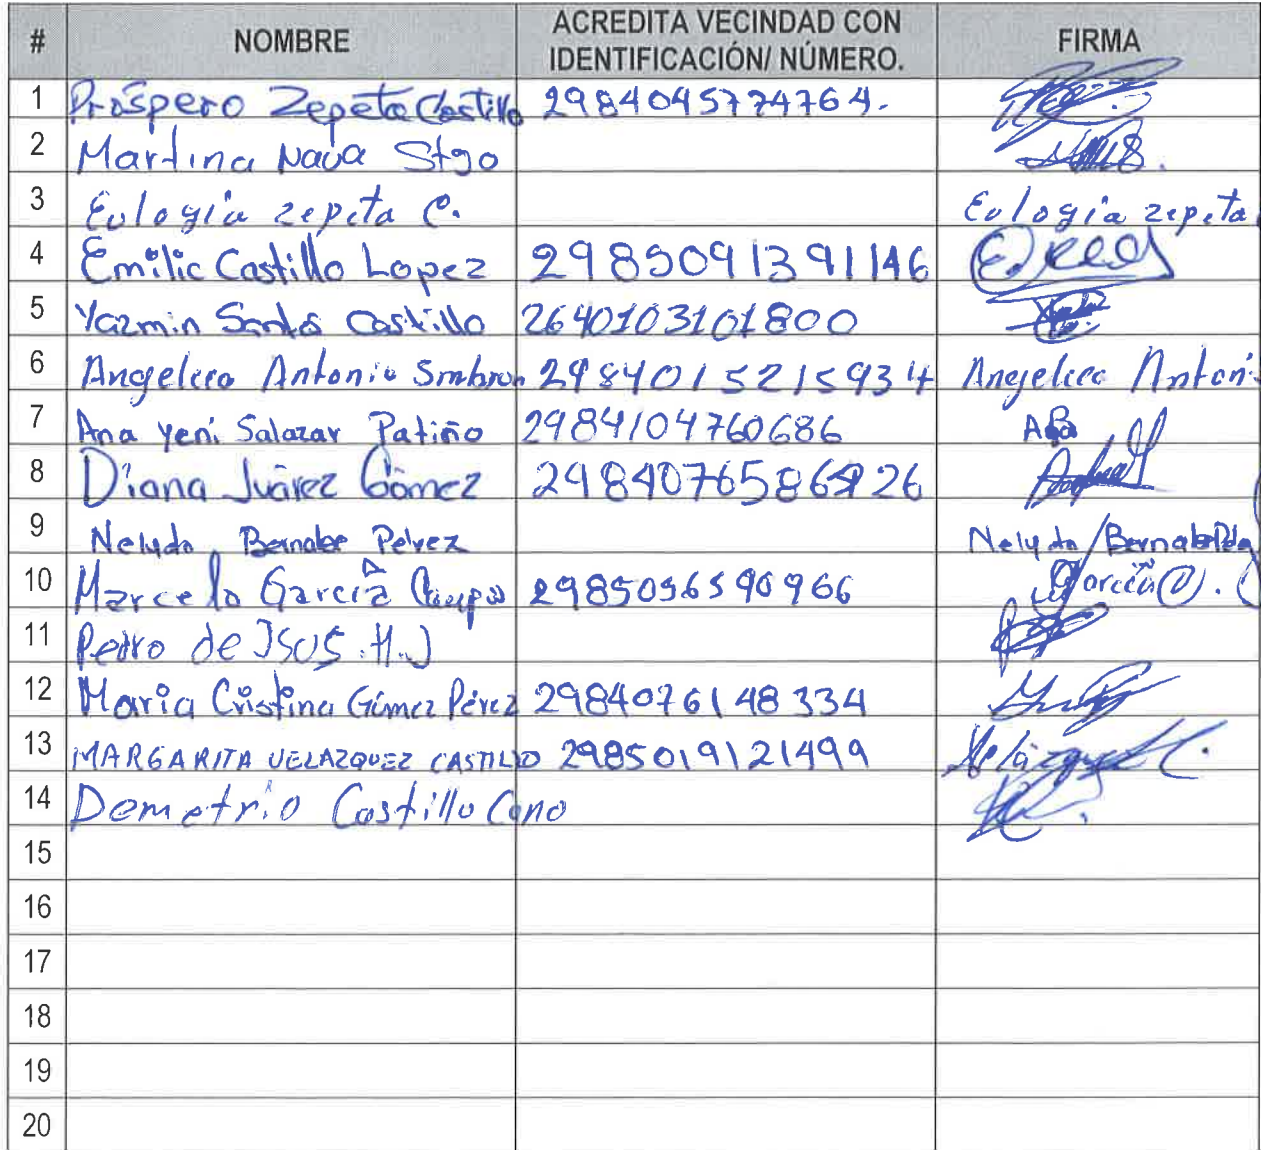 # NOMBRE ACREDITA VECINDAD CON IDENTIFICACIÓN/ NÚMERO. FIRMA
1 Próspero Zepeta Castillo 2984045774764.
2 Martina Nava Stgo
3 Eulogia zepeta C. Eulogia zepeta
4 Emilic Castillo Lopez 2985091391146
5 Yazmin Santos Castillo 2640103101800
6 Angelica Antonio 2984015215934 Angelica Anton
7 Ana Yeni Salazar Patiño 2984104760686
8 Diana Juárez Gómez
9 Nelyda Bernabe Pérez Nelyda
10 Marcelo García 2985096590966 García
11 Pedro de JSUS .H.J
12 Maria Cristina Gómez Pérez 2984076148334
13 MARGARITA VELAZQUEZ CASTILLO 2985019121499
14 Demetrio Castillo Cano
15
16
17
18
19
20